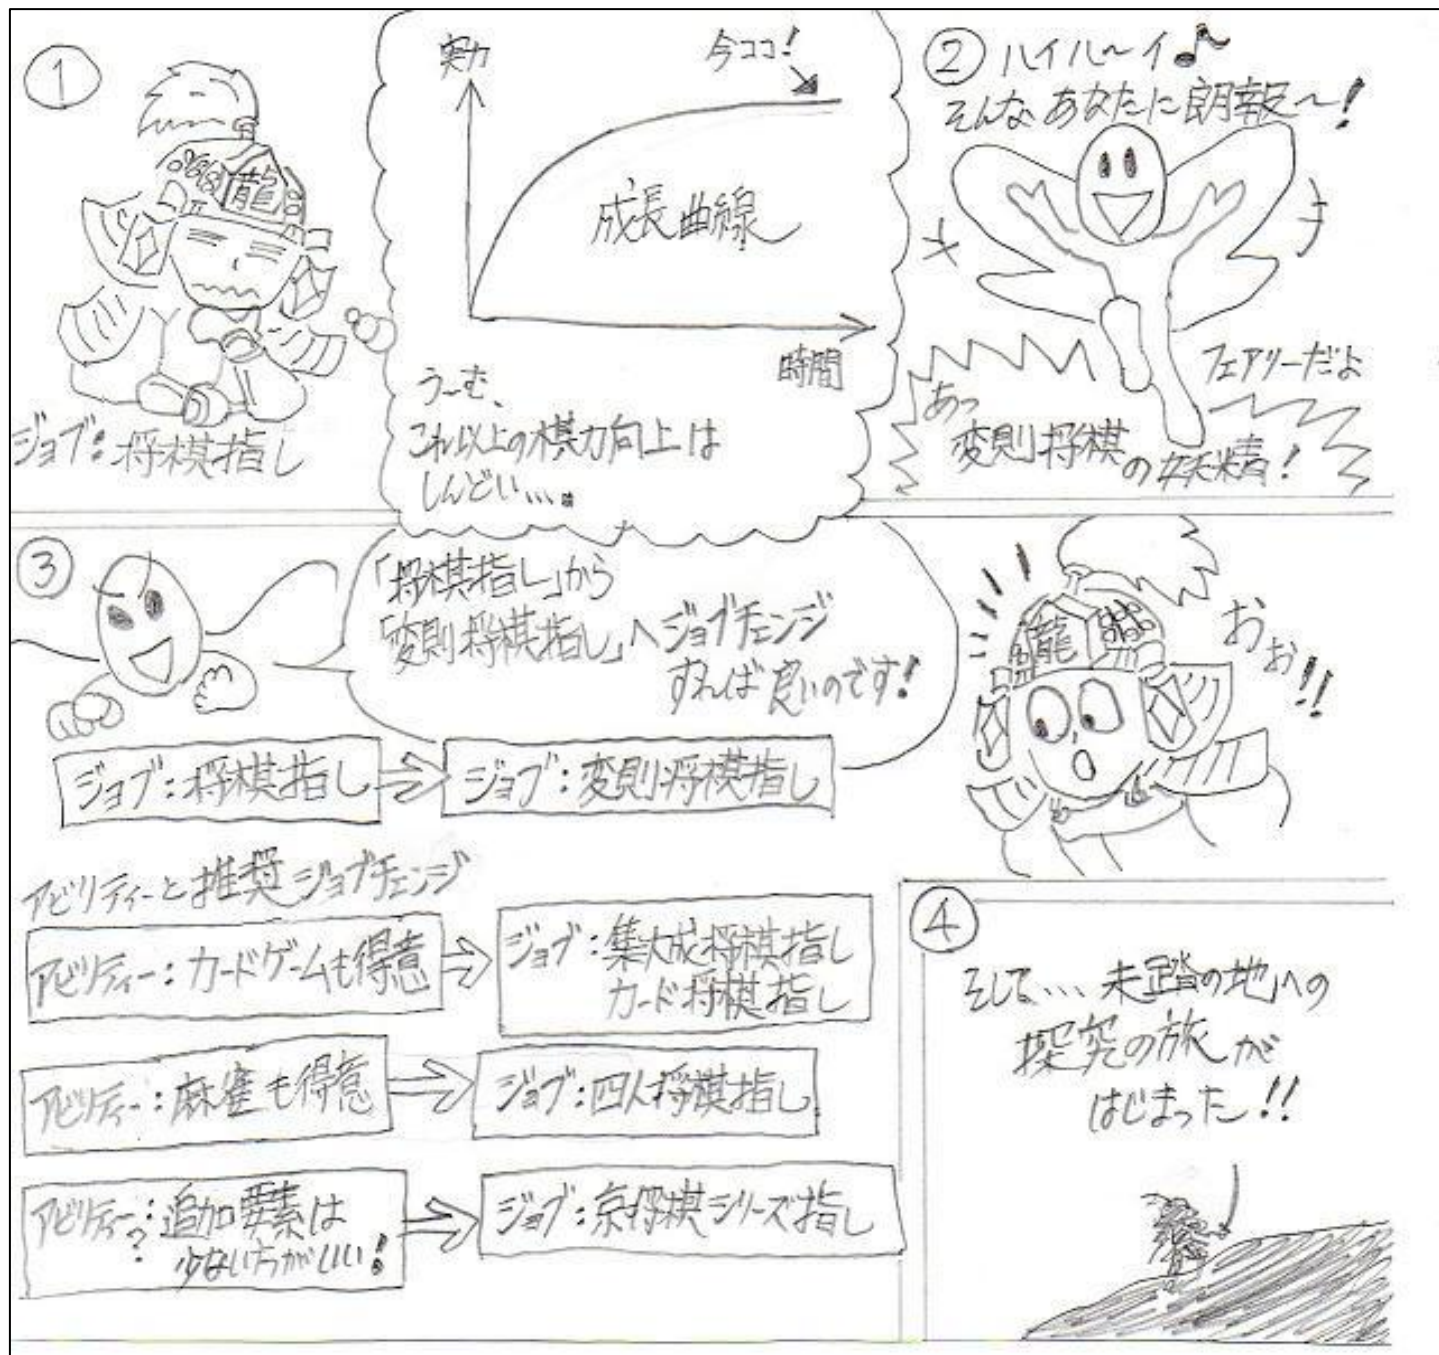 ①
龍
ジョブ：将棋指し
実力
今ココ！
成長曲線
時間
う〜む、
これ以上の棋力向上は
しんどい…。
② ハイハ〜イ♪
そんなあなたに朗報〜！
フェアリーだよ
あっ
変則将棋の妖精！
③
「将棋指し」から
「変則将棋指し」へジョブチェンジ
すれば良いのです！
龍
おぉ!!
ジョブ：将棋指し
ジョブ：変則将棋指し
アビリティーと推奨ジョブチェンジ
アビリティー：カードゲームも得意
ジョブ：集大成将棋指し
カード将棋指し
アビリティー：麻雀も得意
ジョブ：四人将棋指し
アビリティー？：追加要素は
少ない方がいい！
ジョブ：京将棋シリーズ指し
④
そして…未踏の地への
探究の旅が
はじまった!!